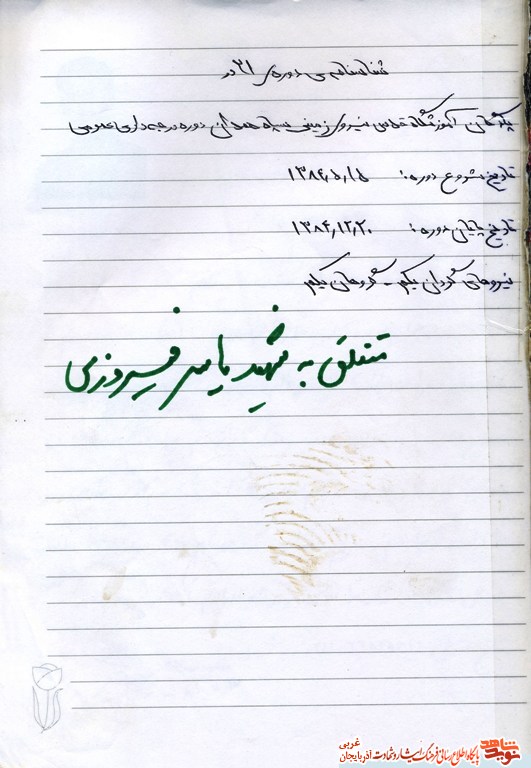 شناسنامه ی دوره ی ۳۱ در
آموزشگاه قدس نیروی زمینی سپاه همدان دوره درجه داری عمومی
تاریخ شروع دوره: ۱۳۸۴,۵,۱۵
تاریخ پایان دوره: ۱۳۸۴,۱۲,۲۰
نیروهای گردان یکم - گروهان یکم
متعلق به شهید یاسر فیروزی
نوید شاهد
پایگاه اطلاع رسانی فرهنگ ایثار و شهادت آذربایجان غربی